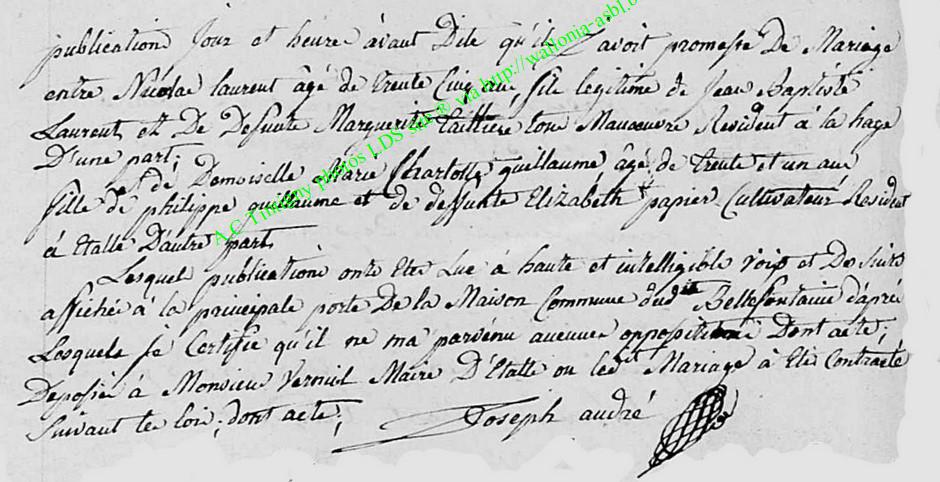 publication Jour et heure avant Dite qu'il y avoit promesse De Mariage
entre Nicolas laurent âgé de trente Cinq ans, fils legitime de Jean Baptiste
Laurent et De Defunte Marguerite taillieze tous Manoeuvre Resident à la hage
D'une part;
et de Demoiselle Marie Charlotte guillaume âgé de trente et un ans
fille de philippe guillaume et de deffunte Elizabeth papier Cultivateur Resident
à Etalle D'autre part.
Lesquel publication onte Ete Lue à haute et intelligible voix et De Suite
affichée à la principale porte De la Maison Commune dudit Bellefontaine d'aprés
Lesquels je Certifie qu'il ne ma parvenu aucune opposition Dont acte;
Deposée à Monsieur Vernil Maire D'Etalle ou led Mariage à Ete Contracté
Suivant le loix, dont acte;
Joseph andré
A.C. Timothy photos LDS via http://wallonia-asbl.b